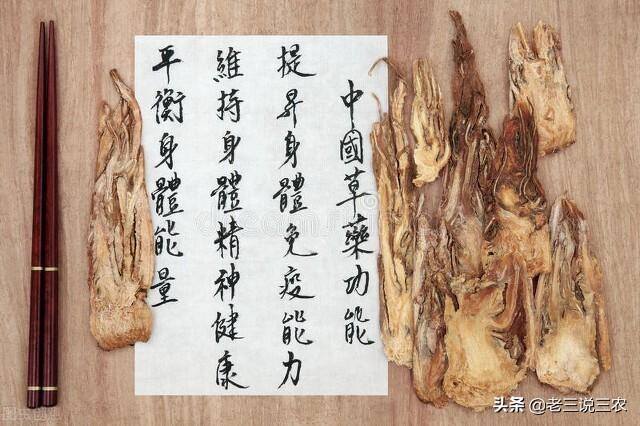 中國草藥功能
提昇身體免疫能力
維持身體精神健康
平衡身體能量
头条 @老三说三农